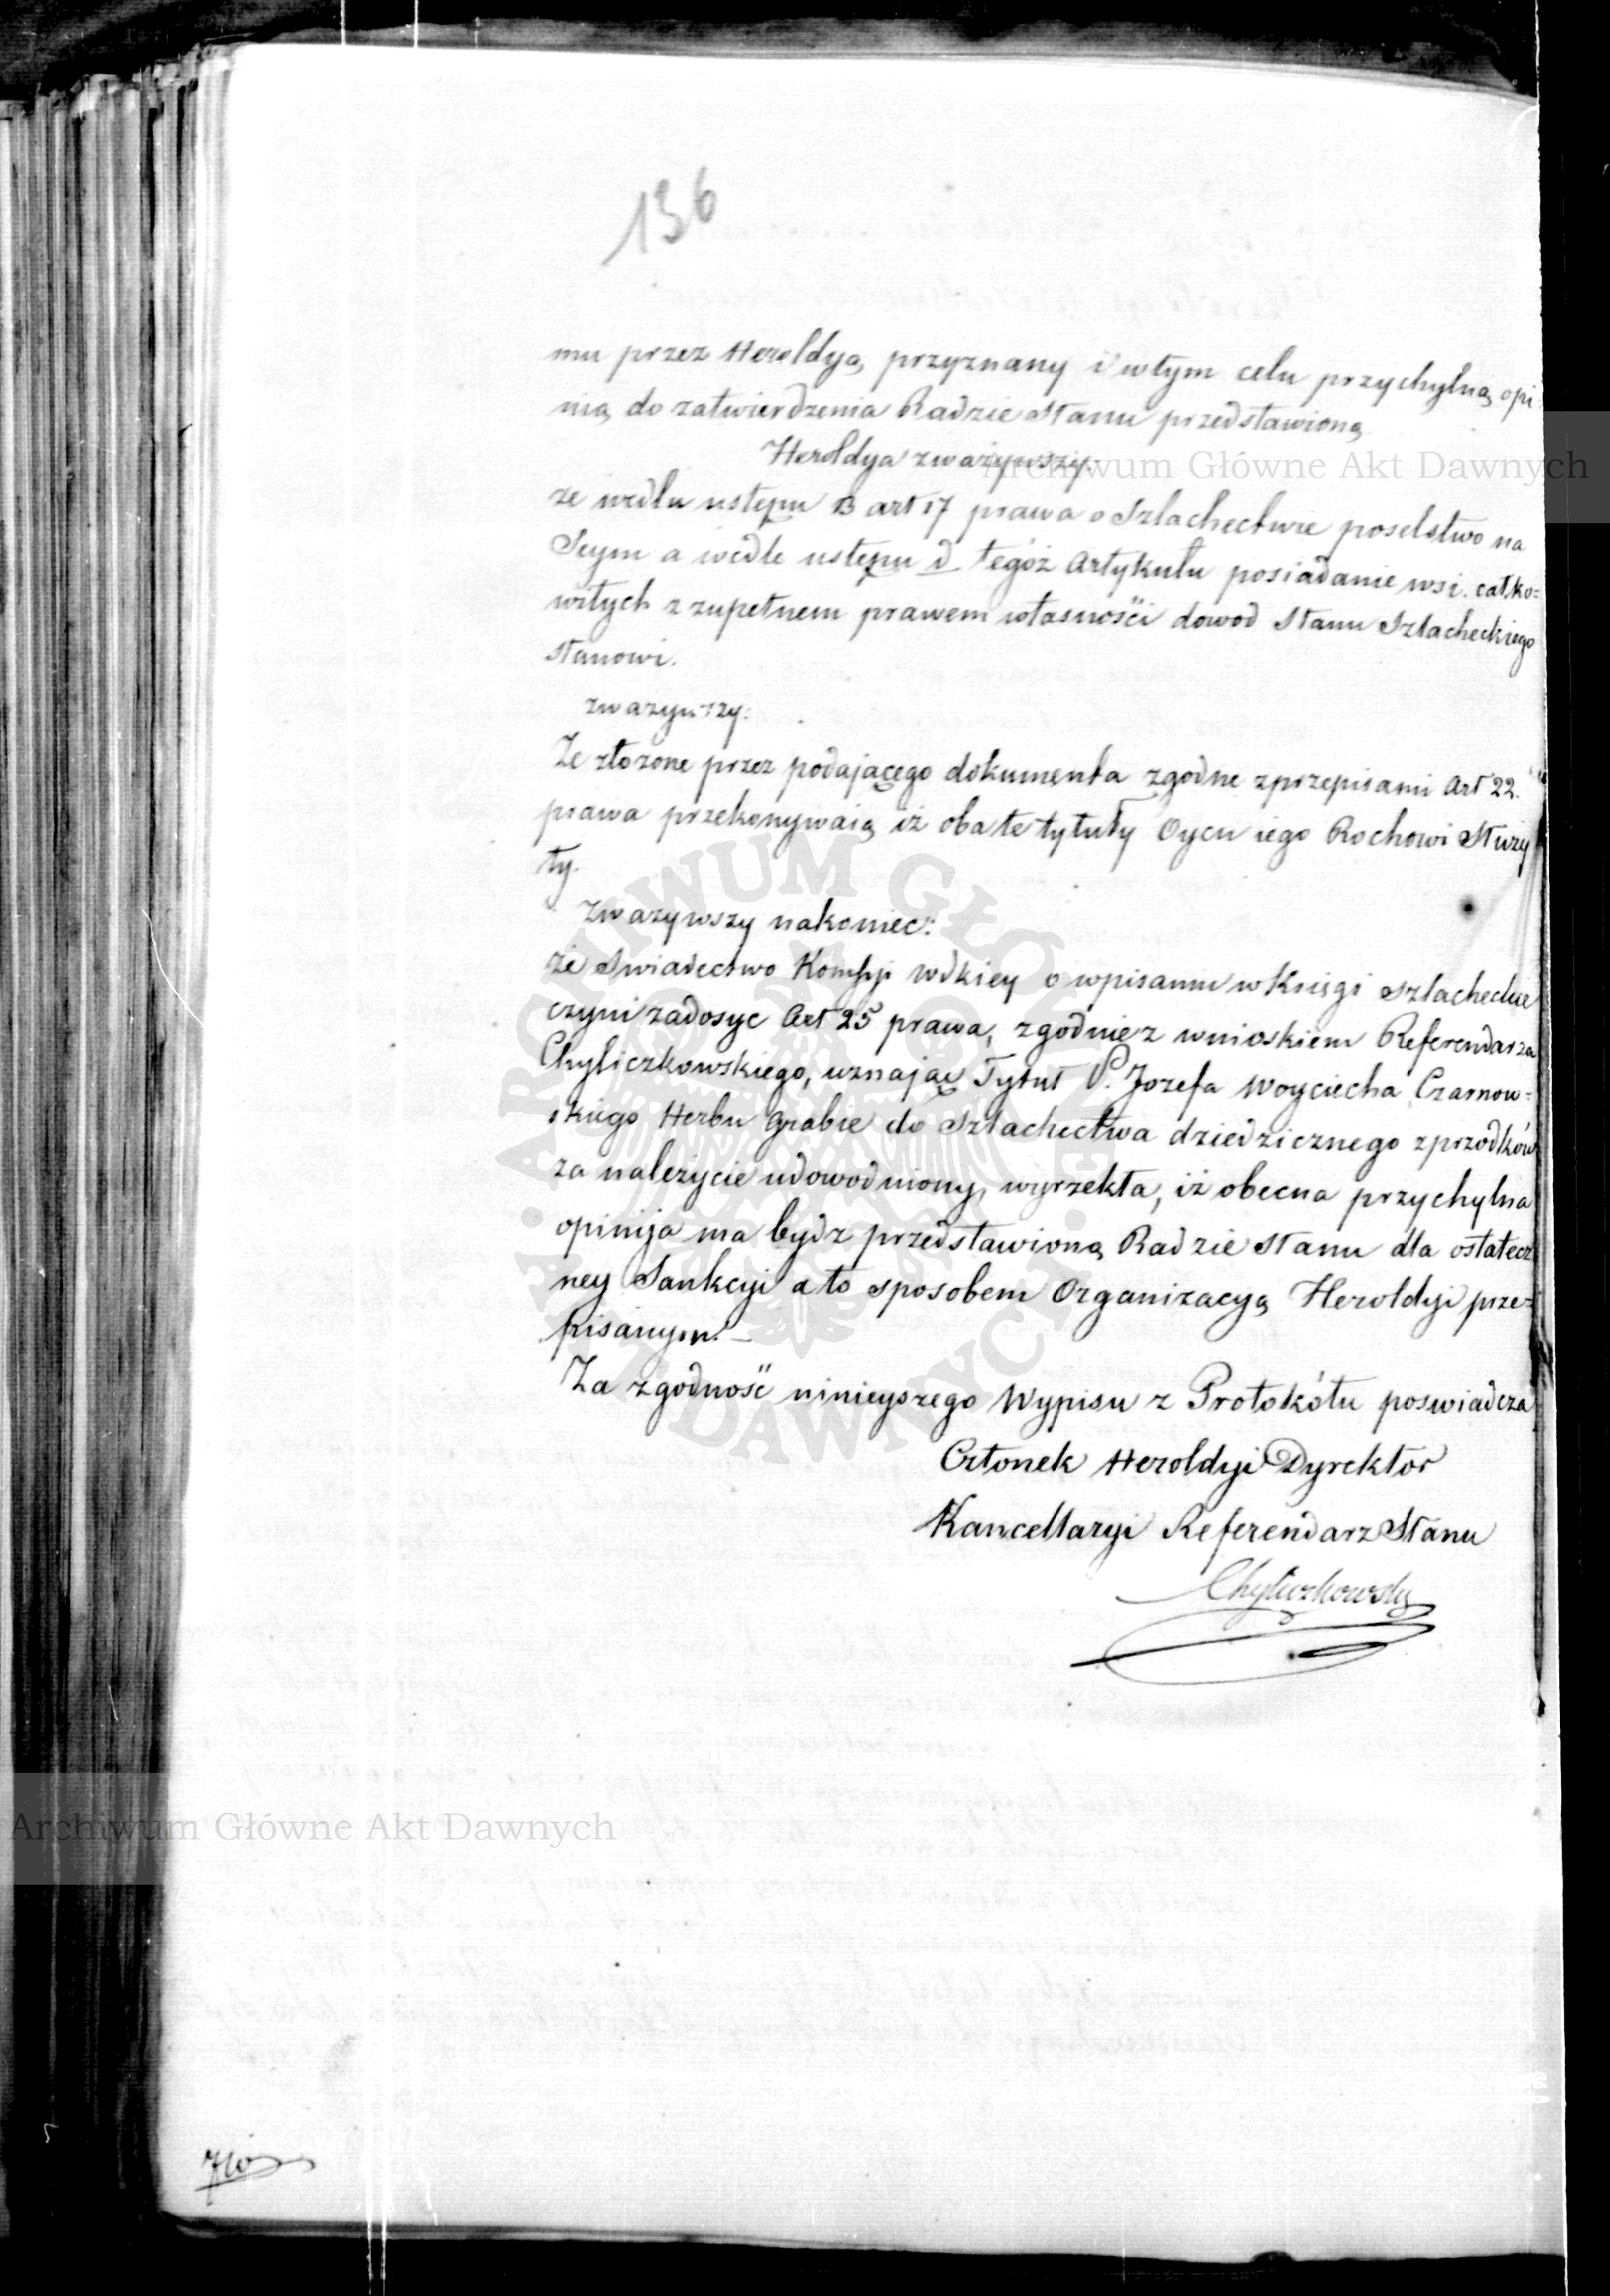 136
mu przez Heroldyą przyznany i w tym celu przychylną opi
nią do zatwierdzenia Radzie Stanu przedstawioną.
Heroldya zważywszy:
że wedlu ustępu B art 17 prawa o Szlachectwie poselstwo na
Seym a wedle ustępu d tegóż Artykułu posiadanie wsi całko=
witych z zupełnem prawem własności dowod Stanu Szlacheckiego
stanowi.
zwazywszy:
Ze złozone przez podającego dokumenta zgodne z przepisami Art 22.
prawa przekonywaią iż oba te tytuły Oycu iego Rochowi służy
ły.
Zwazywszy nakoniec:
że Swiadectwo Kommssyi Wdkiey o wpisaniu w Księgi Szlacheckie
czyni zadosyc Art 25 prawa, zgodnie z wnioskiem Referendarza
Chyliczkowskiego, uznając Tytuł P. Jozefa Woyciecha Czarnow=
skiego Herbu Grabie do Szlachectwa dziedzicznego z przodków
za należycie udowodniony, wyrzekła, iż obecna przychylna
opinija ma bydz przedstawioną Radzie Stanu dla ostatecz
ney Sankcyi a to sposobem Organizacyą Heroldyi prze=
pisanym.
Za zgodność ninieyszego Wypisu z Protokółu poswiadcza
Członek Heroldyi Dyrektor
Kancellaryi Referendarz Stanu
Chyliczkowski
Archiwum Główne Akt Dawnych
ARCHIWUM GŁÓWNE AKT DAWNYCH
Archiwum Główne Akt Dawnych